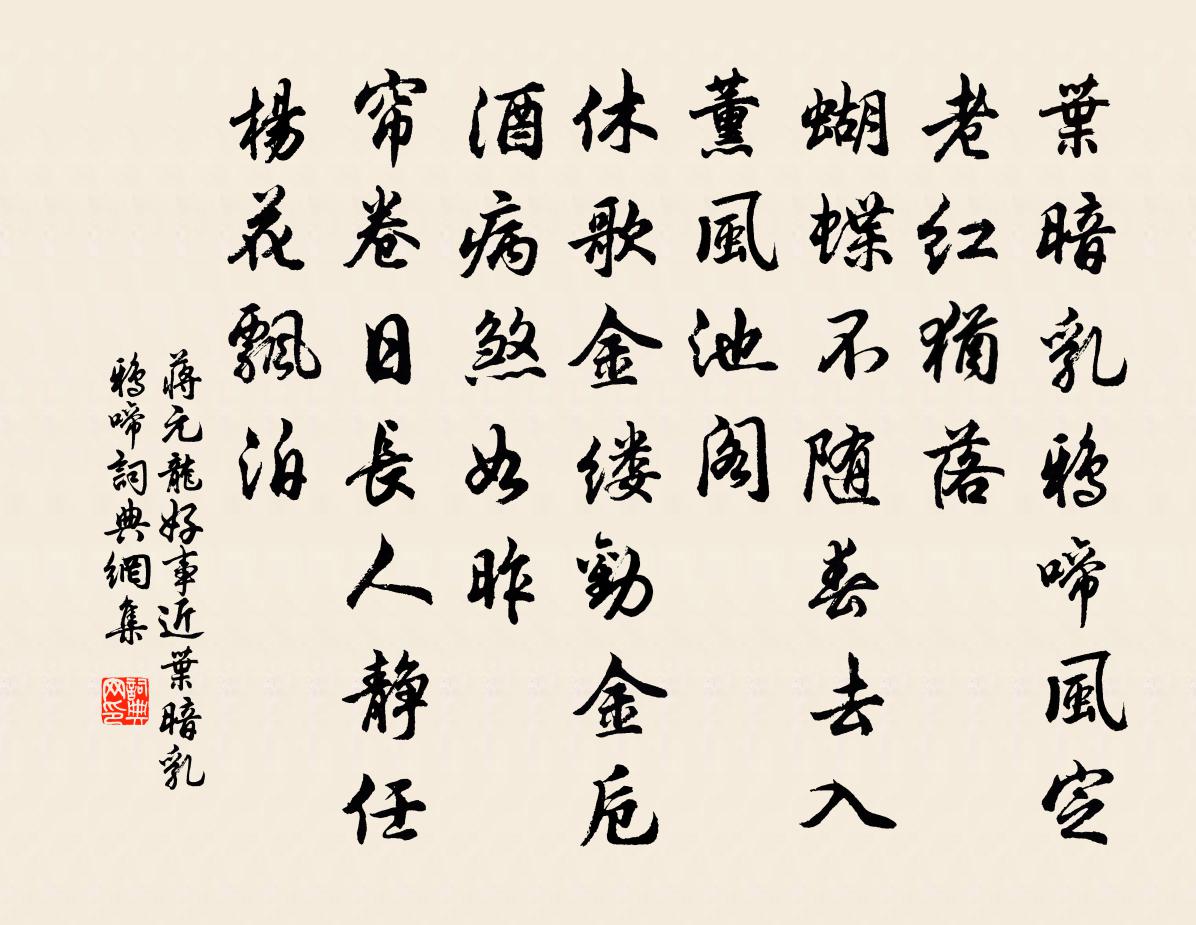 葉暗乳鴉啼風定
老红猶落
蝴蝶不随春去入
薰風池阁
休歌金缕勸金卮
酒病煞如昨
帘卷日長人静任
楊花飄泊
蒋元龍好事近葉暗乳
鴉啼詞典網集
詞典
网印